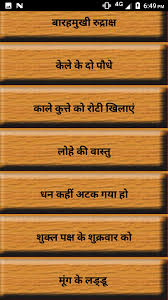 4G 6:49 PM
बारहमुखी रुद्राक्ष
केले के दो पौधे
काले कुत्ते को रोटी खिलाएं
लोहे की वास्तु
धन कहीं अटक गया हो
शुक्ल पक्ष के शुक्रवार को
मूंग के लड्डू